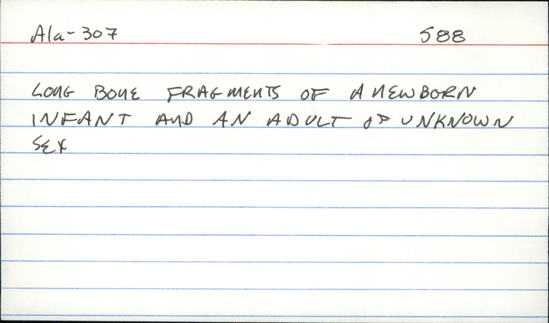 Ala-307 588
LONG BONE FRAGMENTS OF A NEWBORN
INFANT AND AN ADULT OF UNKNOWN
SEX